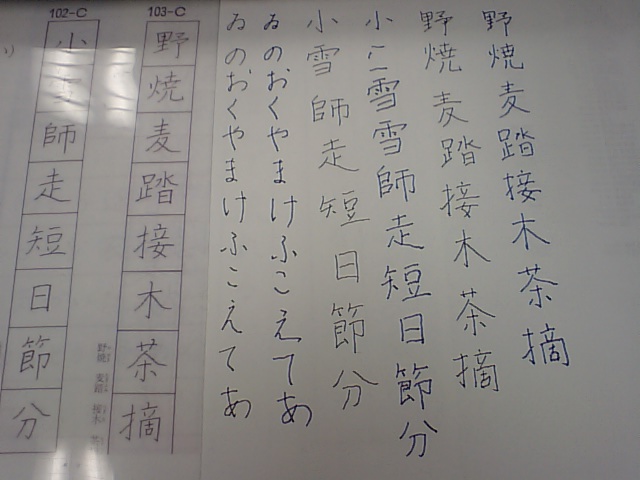 野焼麦踏接木茶摘
野焼麦踏接木茶摘
小こ雪雪師走短日節分
小雪師走短日節分
ゐのおくやまけふこえてあ
ゐのおくやまけふこえてあ
103-C
野焼麦踏接木茶摘
野焼 麦踏 接木
102-C
小雪師走短日節分